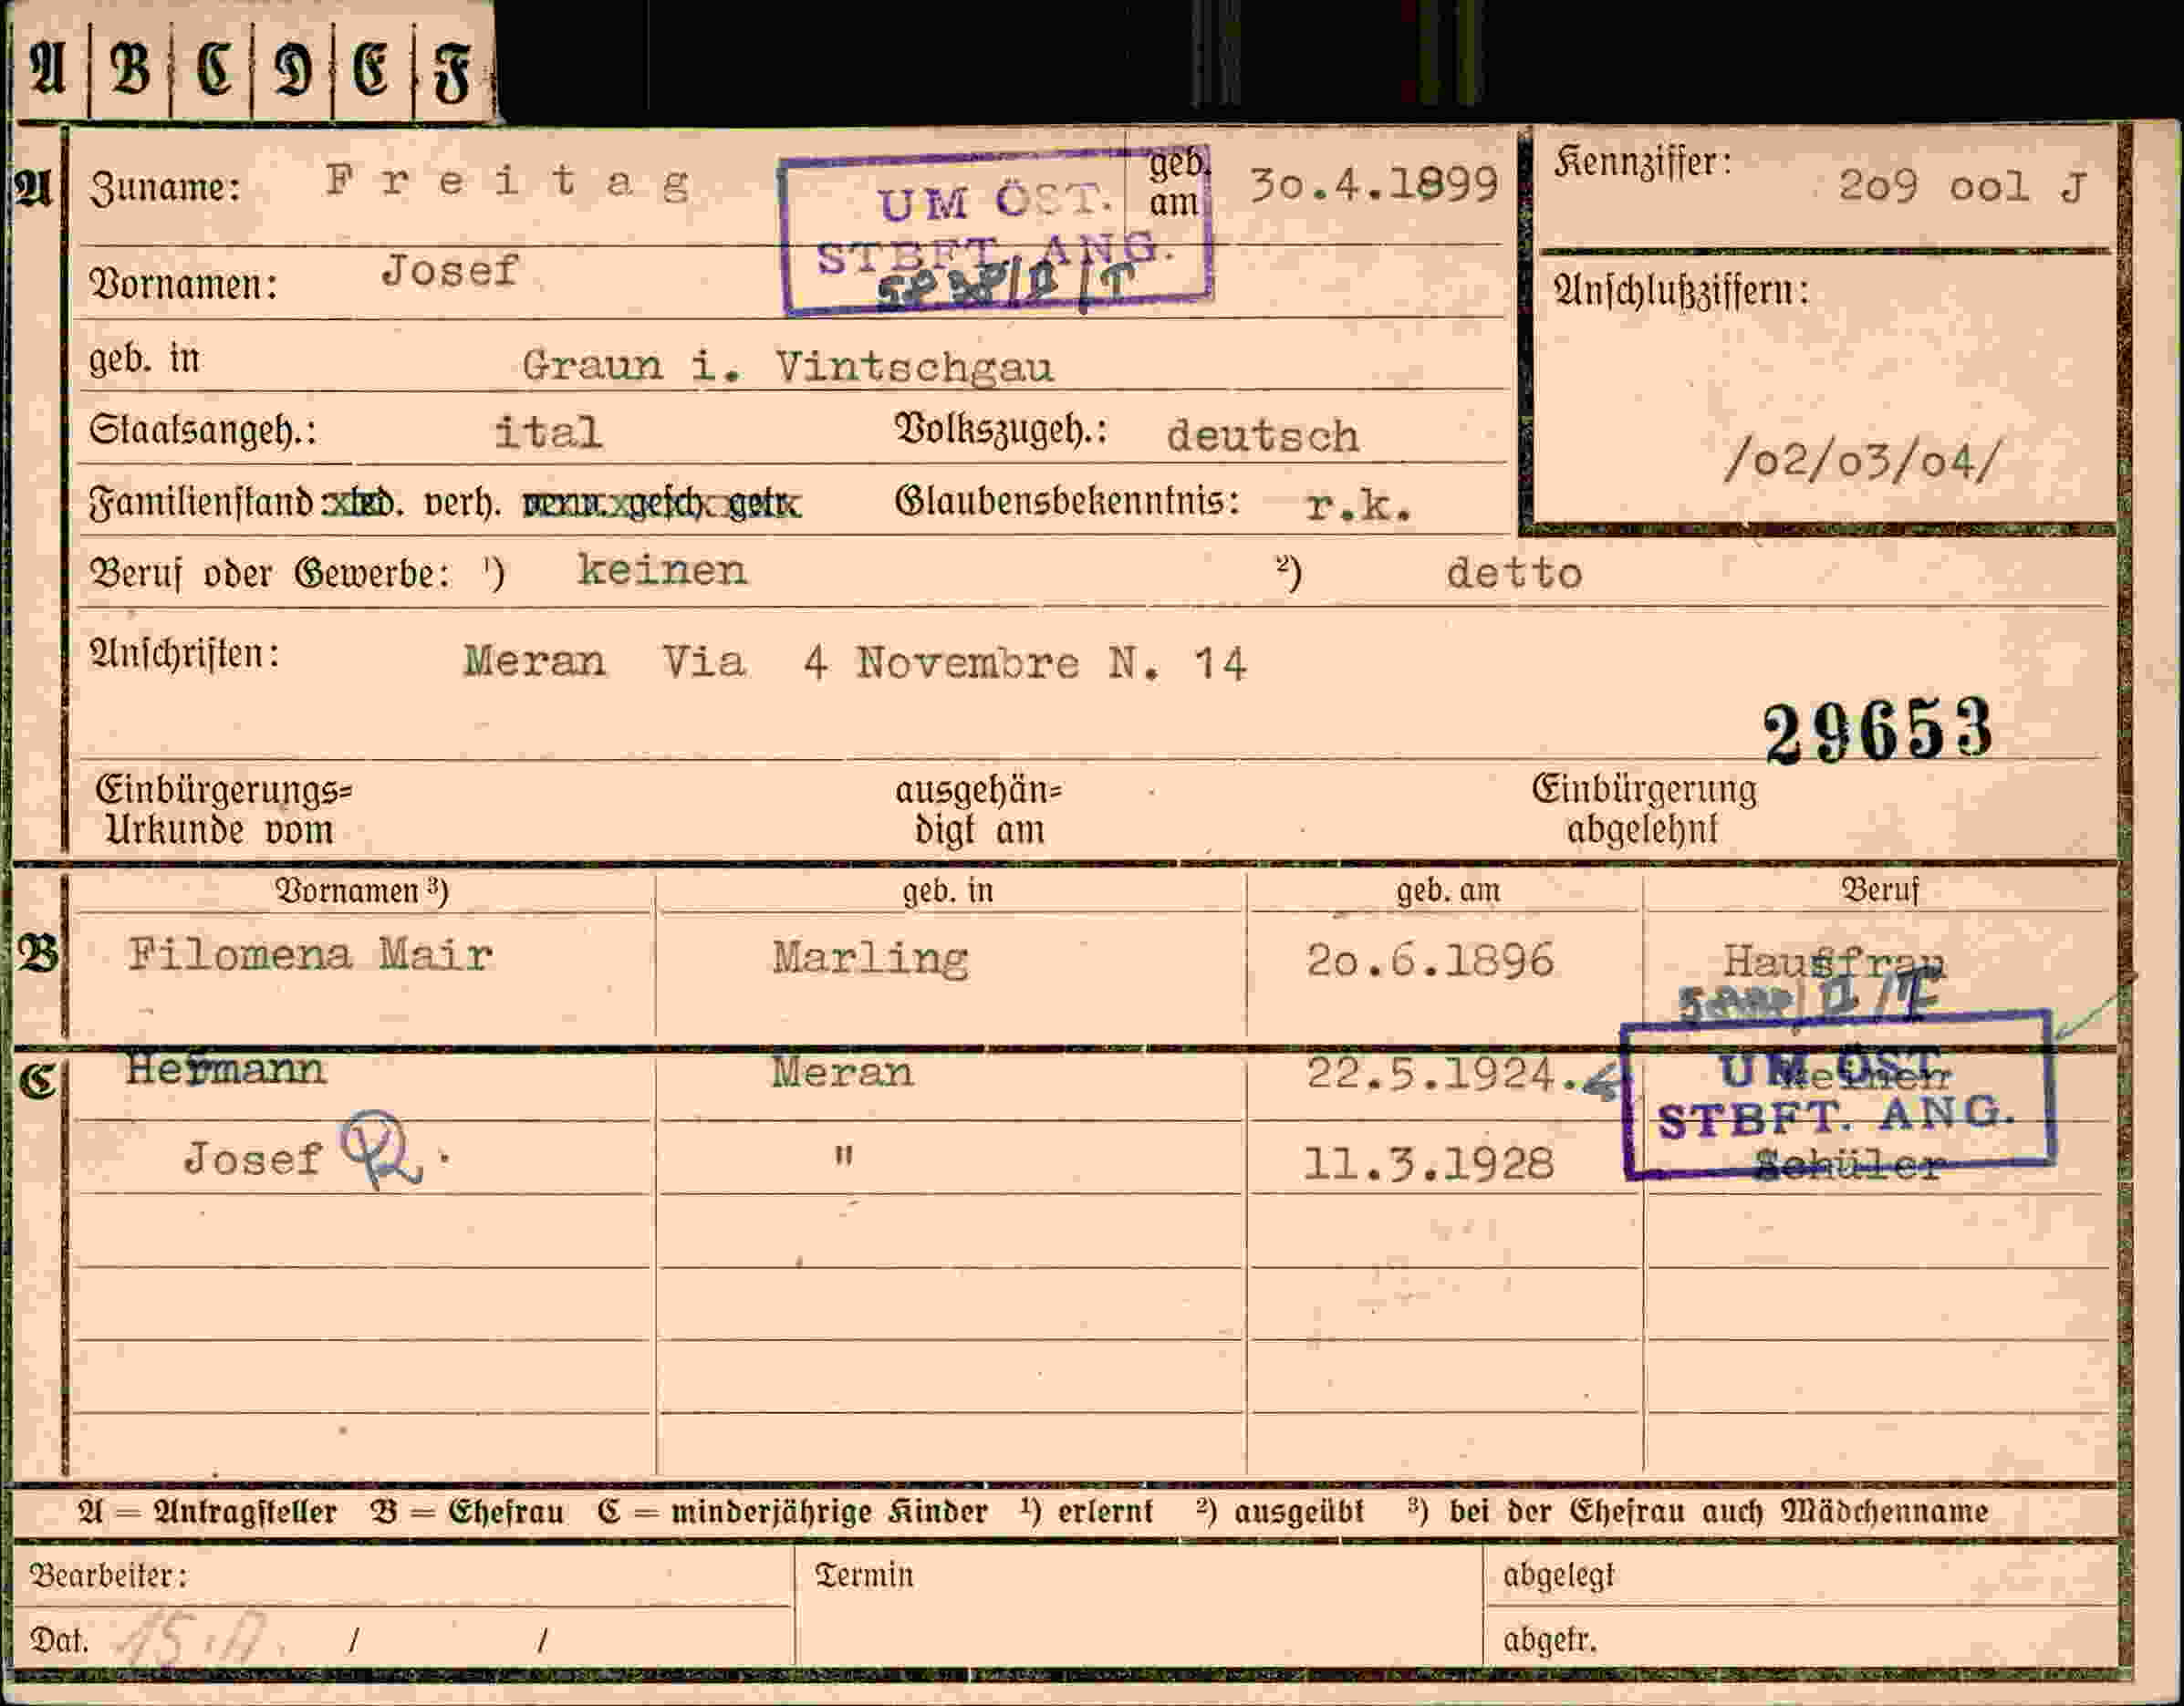 A B C D E F
A Zuname: Freitag geb. am 30.4.1899
UM ÖST.
STBFT. ANG.
Kennziffer: 209 001 J
Vornamen: Josef
Anschlußziffern:
/02/03/04/
geb. in Graun i. Vintschgau
Staatsangeh.: ital Volkszugeh.: deutsch
Familienstand: led. verh. verw. gesch. getr. Glaubensbekenntnis: r.k.
Beruf oder Gewerbe: ¹) keinen ²) detto
Anschriften: Meran Via 4 Novembre N. 14
29653
Einbürgerungs=
Urkunde vom
ausgehän=
digt am
Einbürgerung
abgelehnt
Vornamen ³) geb. in geb. am Beruf
B Filomena Mair Marling 20.6.1896 Hausfrau
C Hermann Meran 22.5.1924.
UM ÖST.
STBFT. ANG.
Josef R. " 11.3.1928 Schüler
A = Antragsteller B = Ehefrau C = minderjährige Kinder ¹) erlernt ²) ausgeübt ³) bei der Ehefrau auch Mädchenname
Bearbeiter: Termin abgelegt
Dat. / / abgetr.